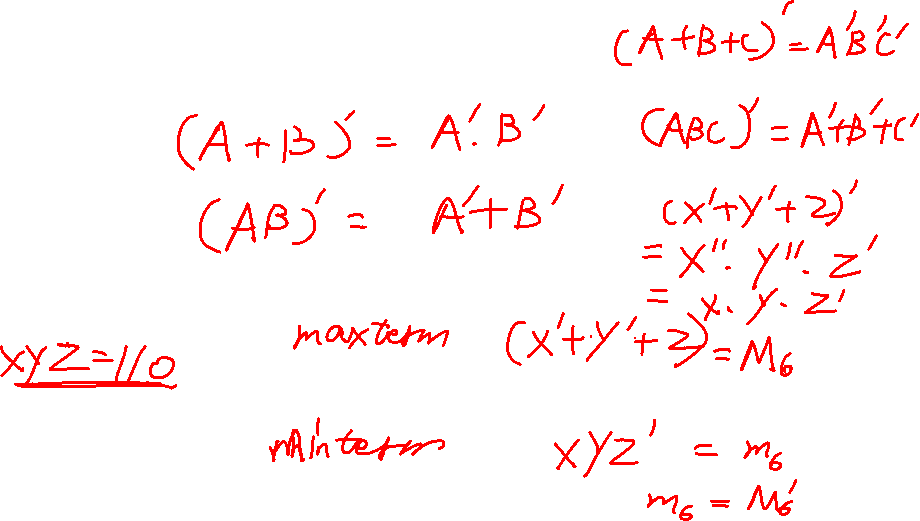 (A+B+C)' = A'B'C'
(A+B)' = A'.B'
(ABC)' = A'+B'+C'
(AB)' = A'+B'
(X'+Y'+Z)'
= X''. Y''. Z'
= X. Y. Z'
maxterm (X'+Y'+Z) = M6
XYZ=110
minterm XYZ' = m6
m6 = M6'